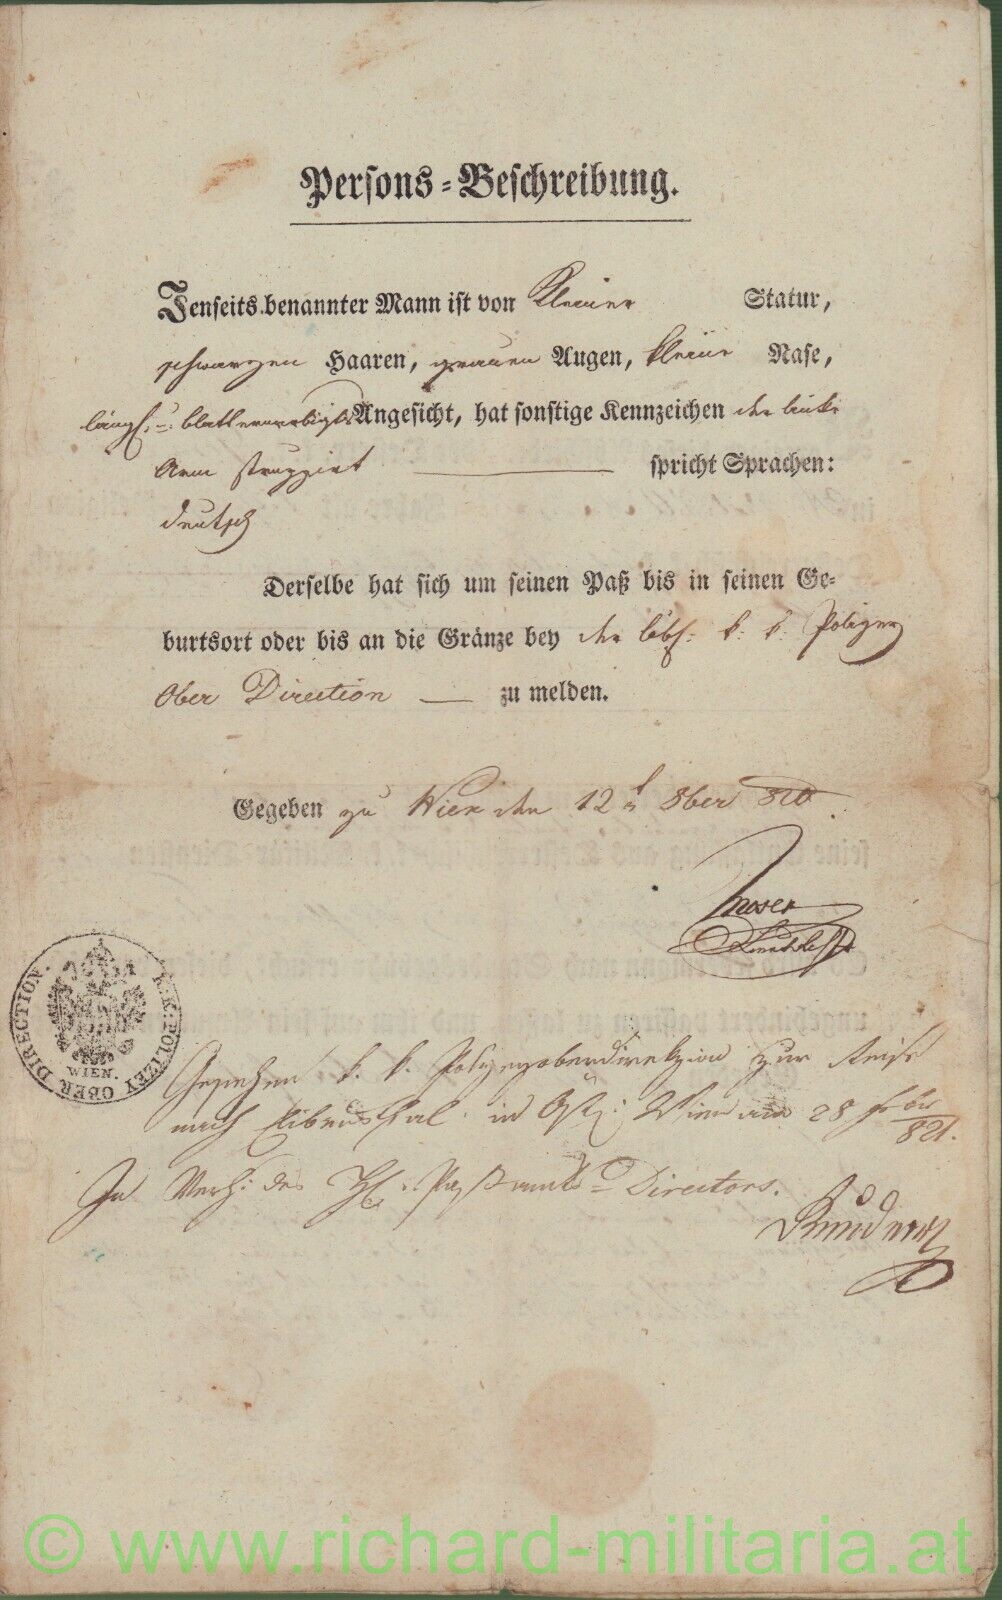 Persons-Beschreibung.
Jenseits benannter Mann ist von kleiner Statur,
schwarzen Haaren, grauen Augen, kleine Nase,
längl. u: blatternarbigtes Angesicht, hat sonstige Kennzeichen der linke
Arm struppirt spricht Sprachen:
deutsch
Derselbe hat sich um seinen Paß bis in seinen Ge-
burtsort oder bis an die Gränze bey der löbl: k: k: Polizey
Ober Direction — zu melden.
Gegeben zu Wien den 12t 8ber 820
Moser
K. K. POLIZEY OBER DIRECTION.
WIEN.
Gesehen k. k. Polizeyoberdirekzion zur Reise
nach in Öst: Wien am 28 821.
In Verh: des H: Paßamts-Directors.
© www.richard-militaria.at